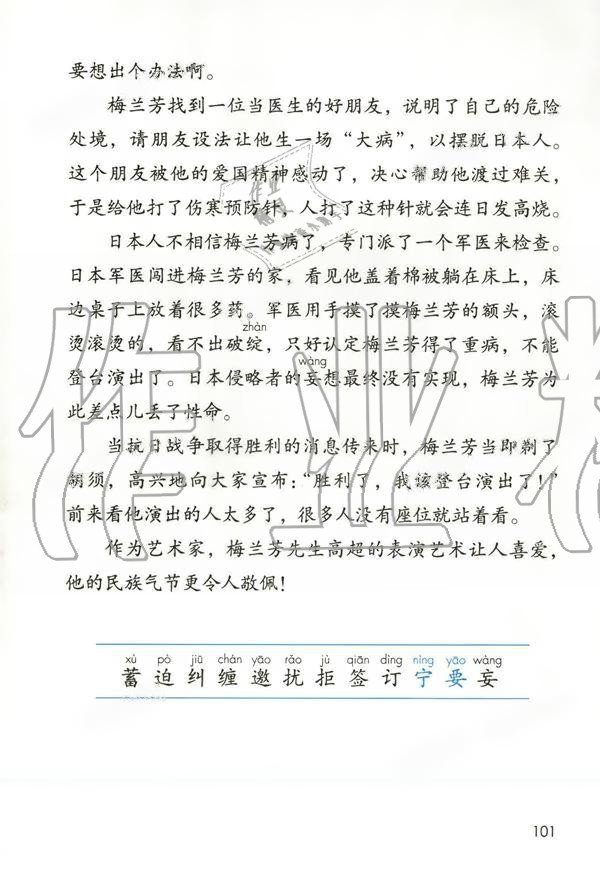 要想出个办法啊。
梅兰芳找到一位当医生的好朋友，说明了自己的危险
处境，请朋友设法让他生一场“大病”，以摆脱日本人。
这个朋友被他的爱国精神感动了，决心帮助他渡过难关，
于是给他打了伤寒预防针，人打了这种针就会连日发高烧。
日本人不相信梅兰芳病了，专门派了一个军医来检查。
日本军医闯进梅兰芳的家，看见他盖着棉被躺在床上，床
边桌子上放着很多药。军医用手摸了摸梅兰芳的额头，滚
zhàn
烫滚烫的，看不出破绽，只好认定梅兰芳得了重病，不能
wàng
登台演出了。日本侵略者的妄想最终没有实现，梅兰芳为
此差点儿丢了性命。
当抗日战争取得胜利的消息传来时，梅兰芳当即剃了
胡须，高兴地向大家宣布：“胜利了，我该登台演出了！”
前来看他演出的人太多了，很多人没有座位就站着看。
作为艺术家，梅兰芳先生高超的表演艺术让人喜爱，
他的民族气节更令人敬佩！
xù pò jiū chán yāo rǎo jù qiān dìng nìng yāo wàng
蓄 迫 纠 缠 邀 扰 拒 签 订 宁 要 妄
101
作业精